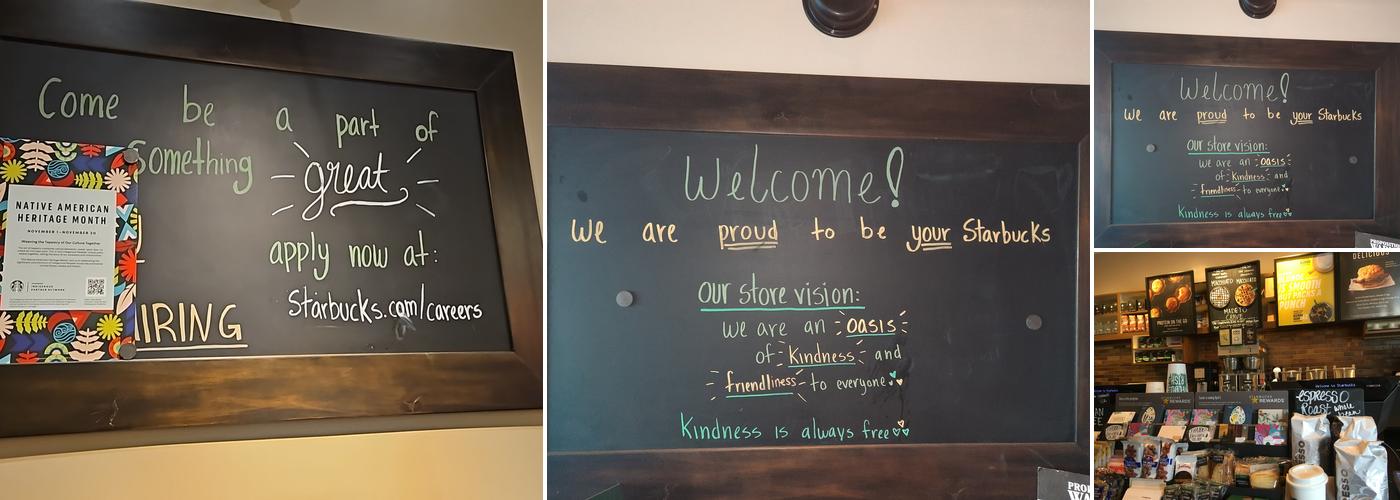 Come be a part of
Something great
NATIVE AMERICAN
HERITAGE MONTH
NOVEMBER 1–NOVEMBER 30
Weaving the Tapestry of Our Culture Together
apply now at:
Starbucks.com/careers
IRING
Welcome!
We are proud to be your Starbucks
our store vision:
we are an oasis
of Kindness and
friendliness to everyone
Kindness is always free
Welcome!
We are proud to be your Starbucks
our store vision:
we are an oasis
of Kindness and
friendliness to everyone
Kindness is always free
DELICIOUS
MACCHIATO
PROTEIN ON THE GO
IS SMOOTH
BUT PACKS A
PUNCH
Welcome to Starbucks
STARBUCKS
REWARDS
espresso
Roast whole
bean